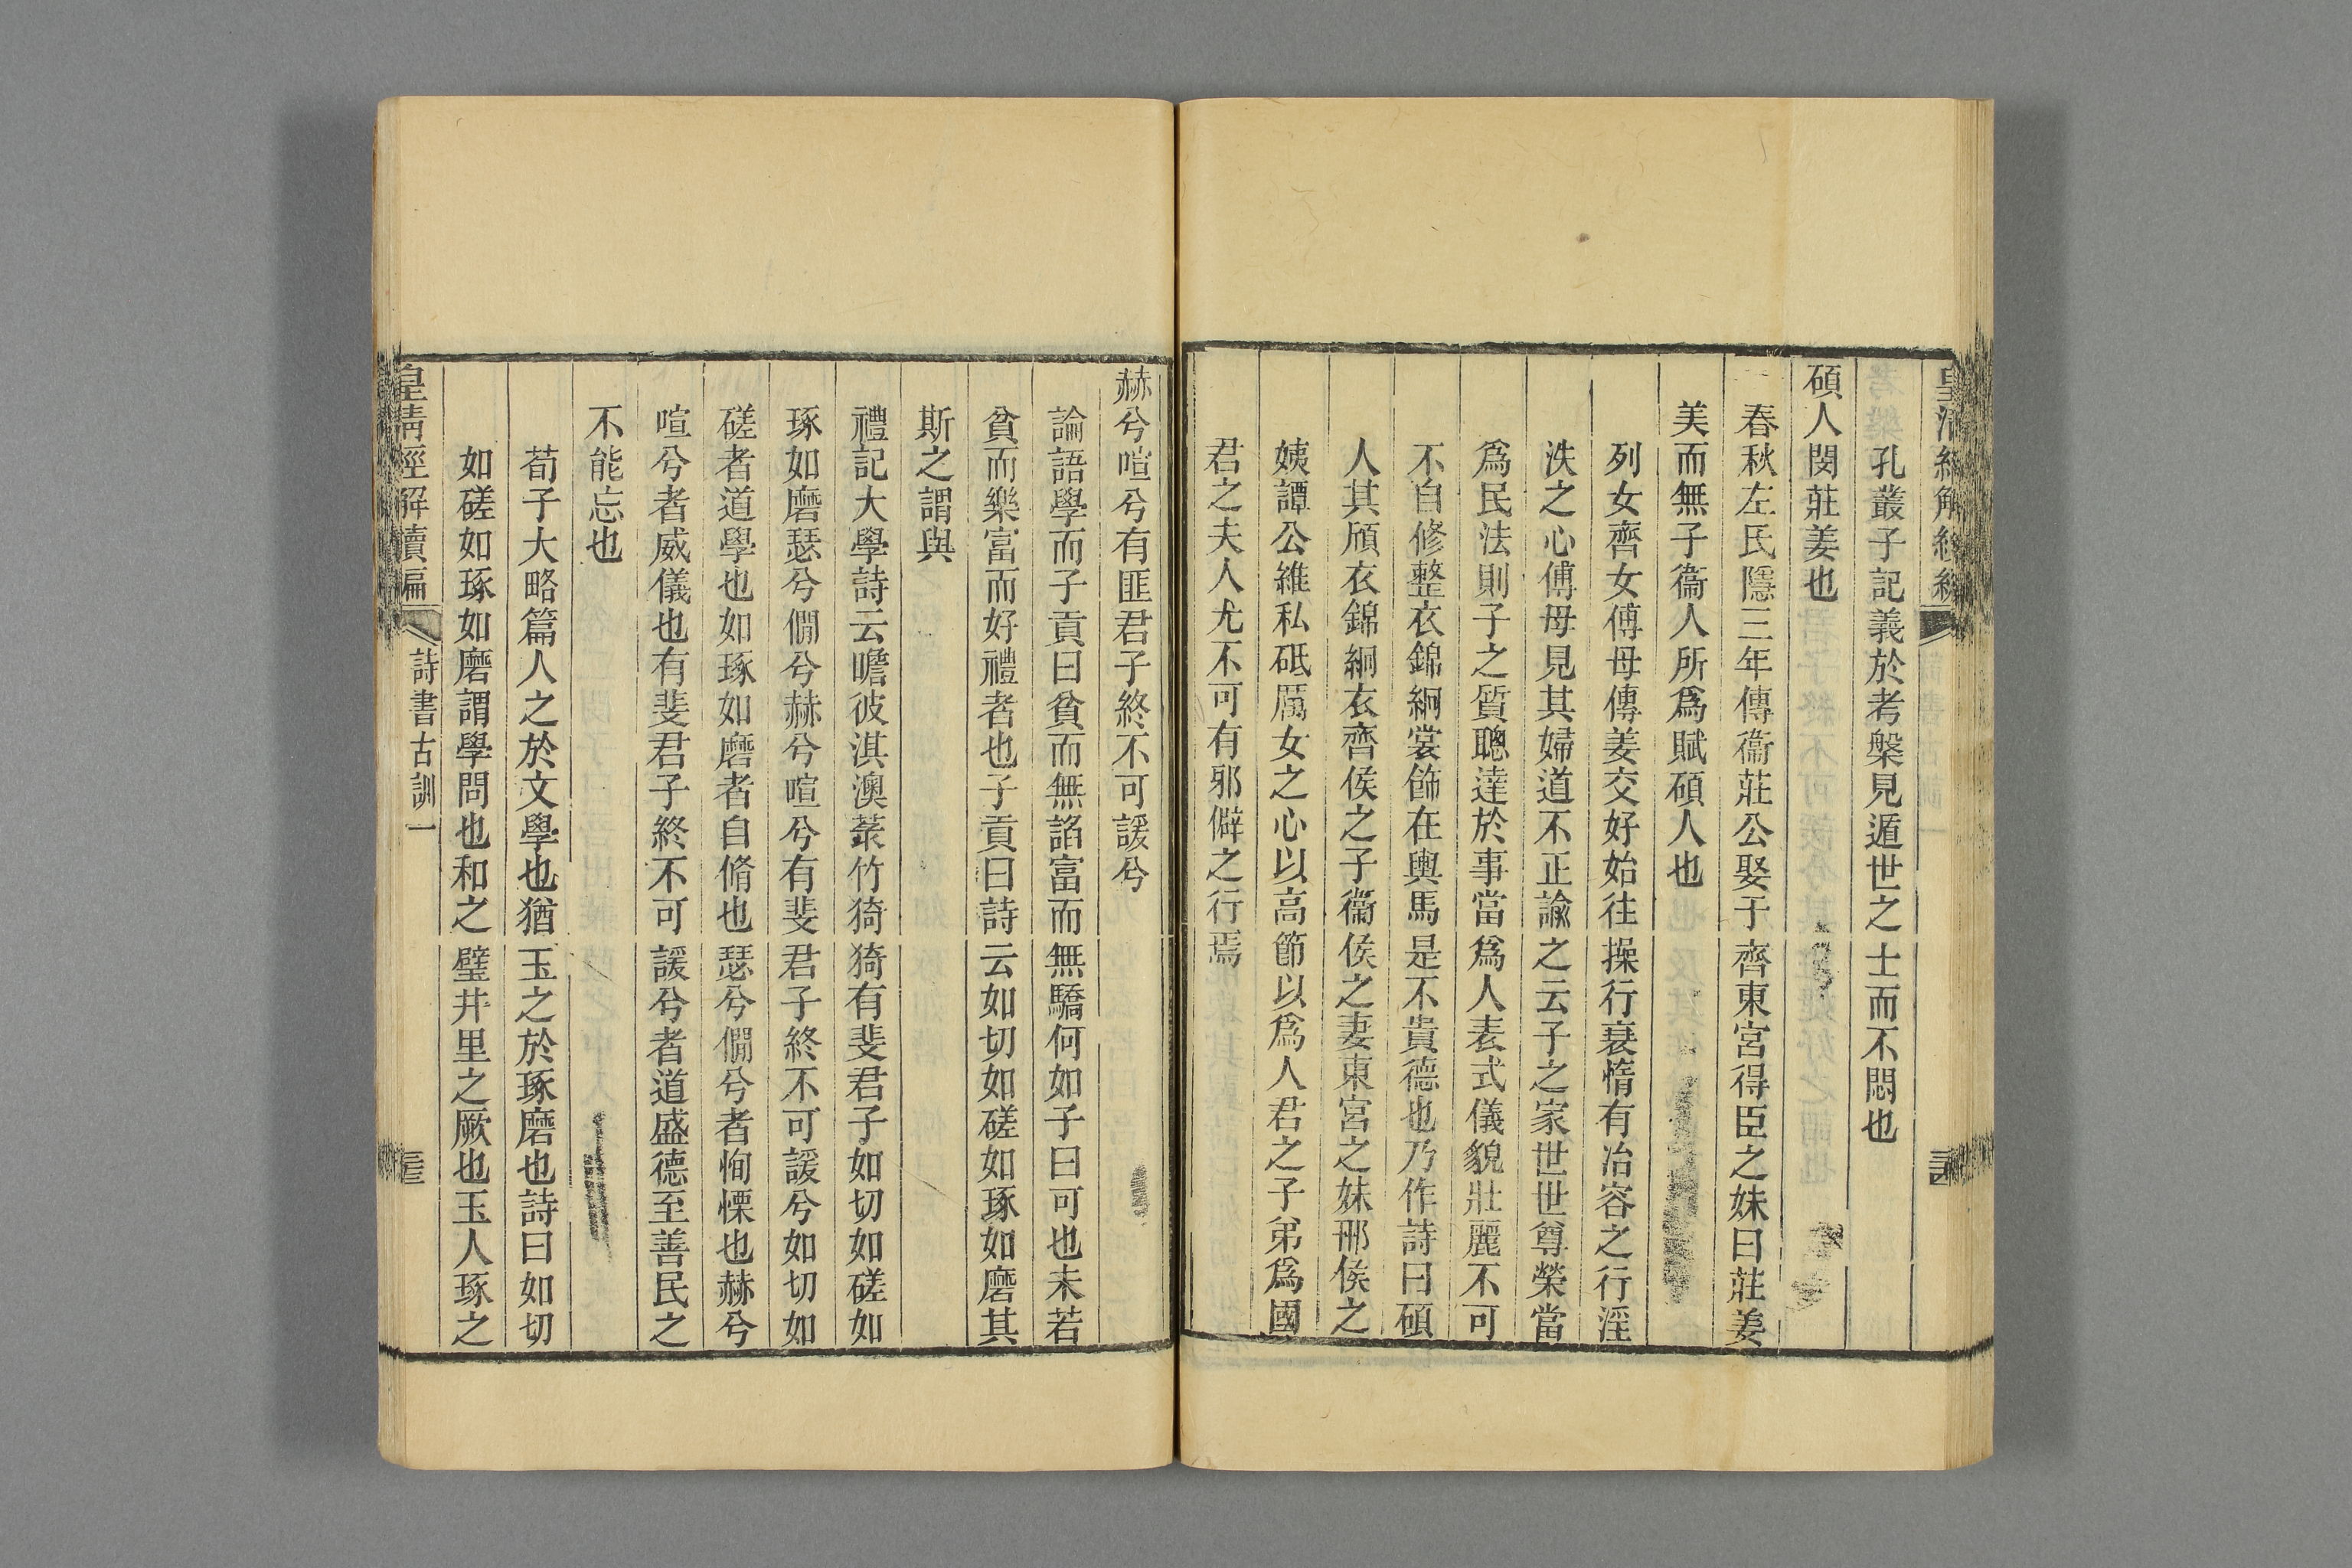 孔叢子記義於考槃見遁世之士而不悶也
碩人閔莊姜也
春秋左氏隱三年傳衞莊公娶于齊東宮得臣之妹曰莊姜
美而無子衞人所爲賦碩人也
列女齊女傅母傳姜交好始往操行衰惰有冶容之行淫
泆之心傅母見其婦道不正諭之云子之家世世尊榮當
爲民法則子之質聰達於事當爲人表式儀貌壯麗不可
不自修整衣錦絅裳飾在輿馬是不貴德也乃作詩曰碩
人其頎衣錦絅衣齊侯之子衞侯之妻東宮之妹邢侯之
姨譚公維私砥厲女之心以高節以爲人君之子弟爲國
君之夫人尤不可有邪僻之行焉
赫兮喧兮有匪君子終不可諼兮
論語學而子貢曰貧而無諂富而無驕何如子曰可也未若
貧而樂富而好禮者也子貢曰詩云如切如磋如琢如磨其
斯之謂與
禮記大學詩云瞻彼淇澳菉竹猗猗有斐君子如切如磋如
琢如磨瑟兮僩兮赫兮喧兮有斐君子終不可諼兮如切如
磋者道學也如琢如磨者自脩也瑟兮僩兮者恂慄也赫兮
喧兮者威儀也有斐君子終不可諼兮者道盛德至善民之
不能忘也
荀子大略篇人之於文學也猶玉之於琢磨也詩曰如切
如磋如琢如磨謂學問也和之璧井里之厥也玉人琢之
皇清經解續編 詩書古訓一